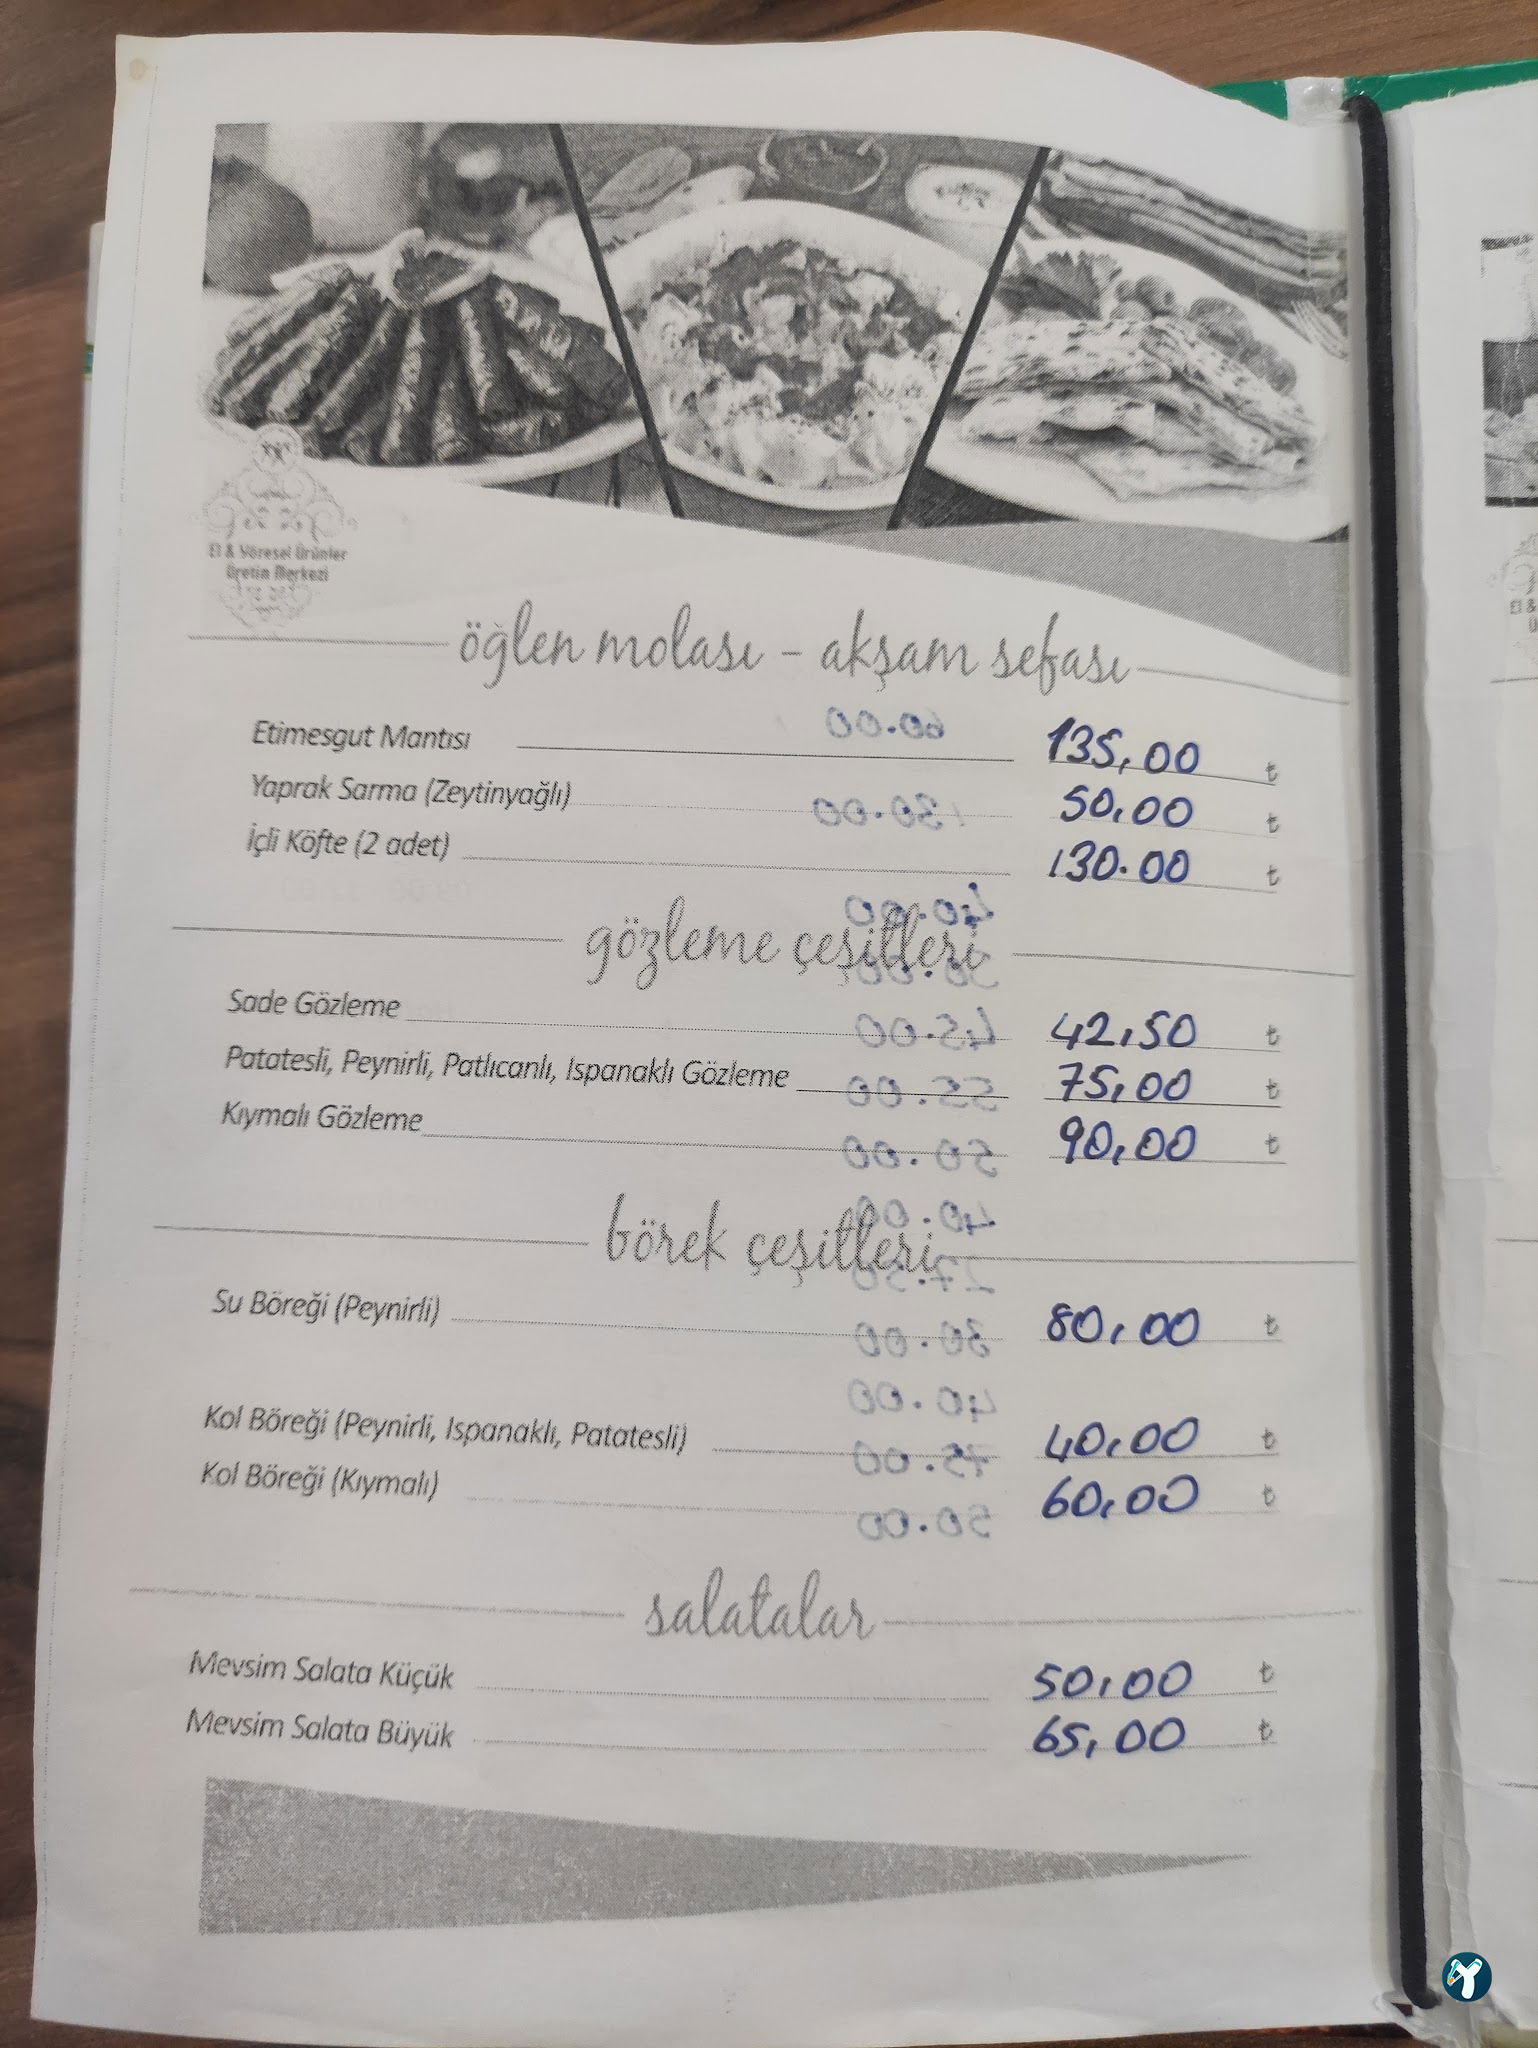 El & Yöresel Ürünler
Üretim Merkezi
öğlen molası - akşam sefası
Etimesgut Mantısı 135,00 ₺
Yaprak Sarma (Zeytinyağlı) 50,00 ₺
İçli Köfte (2 adet) 130.00 ₺
gözleme çeşitleri
Sade Gözleme 42,50 ₺
Patatesli, Peynirli, Patlıcanlı, Ispanaklı Gözleme 75,00 ₺
Kıymalı Gözleme 90,00 ₺
börek çeşitleri
Su Böreği (Peynirli) 80,00 ₺
Kol Böreği (Peynirli, Ispanaklı, Patatesli) 40,00 ₺
Kol Böreği (Kıymalı) 60,00 ₺
salatalar
Mevsim Salata Küçük 50,00 ₺
Mevsim Salata Büyük 65,00 ₺